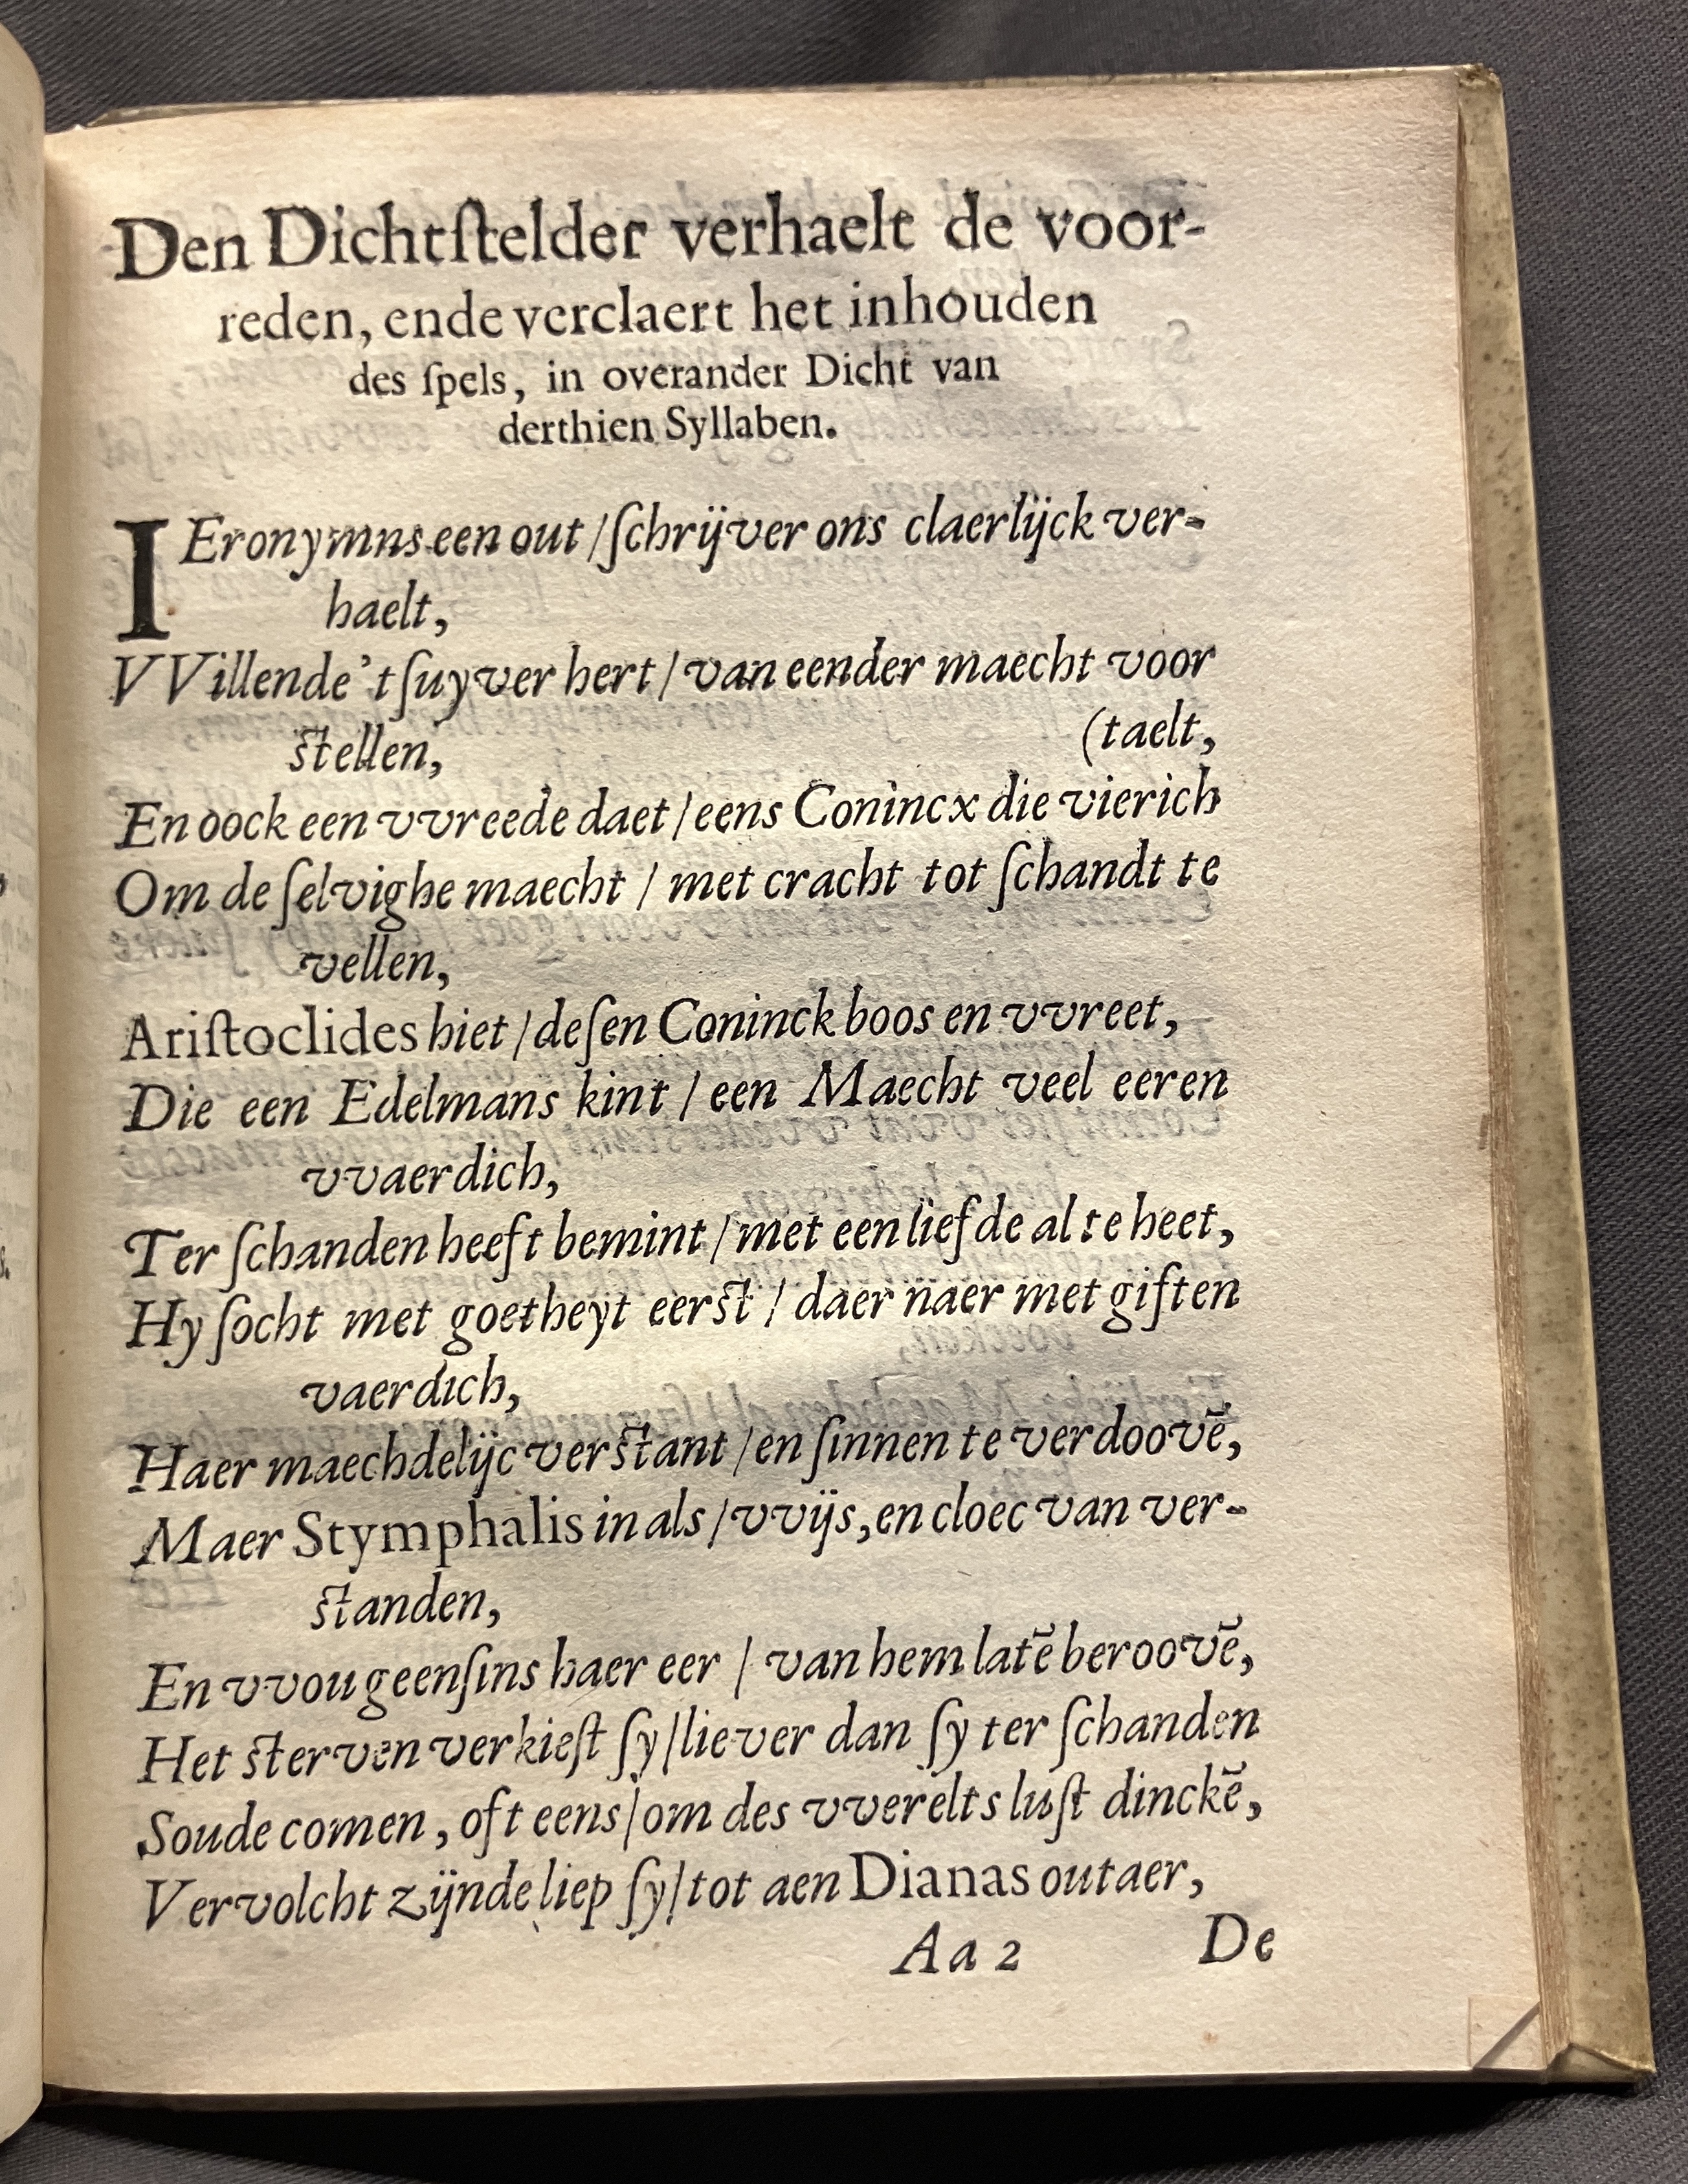 Den Dichtſtelder verhaelt de voor-
reden, ende verclaert het inhouden
des ſpels, in overander Dicht van
derthien Syllaben.
IEronymns een out / ſchrijver ons claerlijck ver-
haelt,
VVillende 't ſuyver hert / van eender maecht voor
ſtellen, (taelt,
En oock een vvreede daet / eens Conincx die vierich
Om de ſelvighe maecht / met cracht tot ſchandt te
vellen,
Ariſtoclides hiet / deſen Coninck boos en vvreet,
Die een Edelmans kint / een Maecht veel eeren
vvaerdich,
Ter ſchanden heeft bemint / met een liefde al te heet,
Hy ſocht met goetheyt eerſt / daer naer met giften
vaerdich,
Haer maechdelijc verſtant / en ſinnen te verdoovẽ,
Maer Stymphalis in als / vvijs, en cloec van ver-
ſtanden,
En vvou geenſins haer eer / van hem latẽ beroovẽ,
Het ſterven verkieſt ſy / liever dan ſy ter ſchanden
Soude comen, oft eens / om des vverelts luſt dinckẽ,
Vervolcht zijnde liep ſy / tot aen Dianas outaer,
Aa 2 De